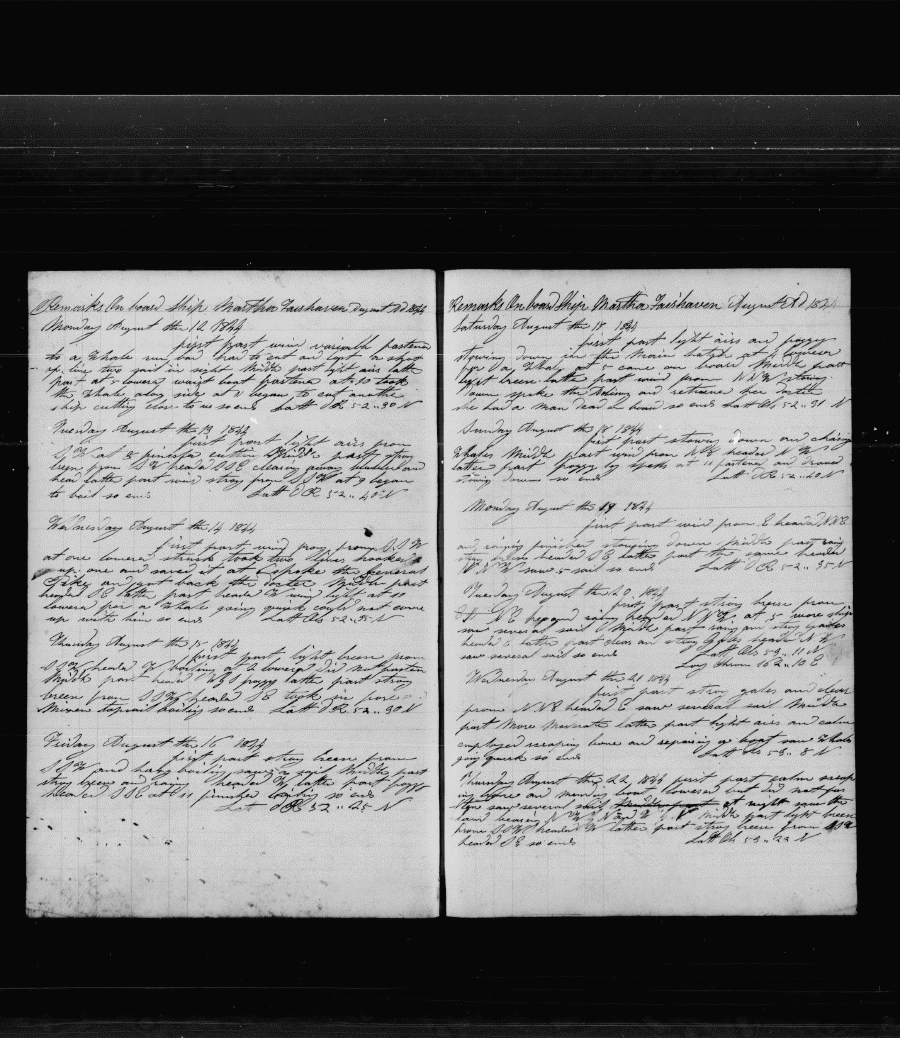 Remarks On board Ship Martha Fairhaven August AD 1844
Monday August the 12 1844
first part wind variable fastened
to a Whale run had to cut and lost a shot
up line two said in sight Middle part light airs latter
part at 5 lowered waist boat fastened at 10 took
the Whale along side at 2 began to cut another
ship cutting close to us so ends Latt Ob 52..30 N
Tuesday August the 13 1844
first part light airs from
S W at 8 finished cutting Middle part strong
breeze from S W headed S S E clearing away blubber and
head latter part wind strong from S S W at 9 began
to boil so ends Latt D R 52..40 N
Wednesday August the 14 1844
first part wind from S S W
at one lowered struck took two lines
up one and saved it at spoke the General
Pike and got back the Doctor Middle part
headed S E latter part headed W wind light at 10
lowered for a Whale going quick could not come
up with him so ends Latt Ob 52..35 N
Thursday August the 15 1844
first part light breeze from
S S W headed W boiling at 2 lowered did not fasten
Middle part headed foggy latter part strong
breeze from S S W headed S E took in fore
Mizen topsail boiling so ends Latt D R 52..30 N
Friday August the 16 1844
first part strong breeze from
S S W and hazy boiling Middle part
strong breeze and raining headed W latter part foggy
headed S S E at 10 finished boiling so ends
Latt D R 52..25 N
Remarks On board Ship Martha Fairhaven August AD 1844
Saturday August the 17 1844
first part light airs and foggy
stowing down in the Main hatch at lowered
for a Whale at 5 came on board Middle part
light breeze latter part wind from N N W stowing
down spoke the and returned her Doctor
she had a man dead on board so ends Latt Ob 52..31 N
Sunday August the 18 1844
first part stowing down and chasing
Whales Middle part wind from N E headed N W
latter part foggy by spells at 11 fastened and drawed
stowing down so ends Latt D R 52..40 N
Monday August the 19 1844
first part wind from E headed N N E
and raining finished stowing down Middle part
headed S E latter part the same headed
N N W saw 5 sail so ends Latt D R 52..35 N
Tuesday August the 20 1844
first part strong breeze from
N E headed N N W at 5 wore ship
saw several sail Middle part strong gales
headed E latter part clear and strong gales headed N W
saw several sail so ends Latt Ob 53..11 N
Long Chron 162..10 E
Wednesday August the 21 1844
first part strong gales and clear
from N N E headed E saw several sail Middle
part More Moderate latter part light airs and calm
employed scraping bone and repairing a boat saw Whales
going quick so ends Latt Ob 53..8 N
Thursday August the 22 1844 first part calm scrap
ing bone and mending boat lowered but did not fas
ten saw several sail at night saw the
land bearing N W Middle part light breeze
from S S W headed W latter part strong breeze from
headed S E so ends Latt Ob 53..22 N